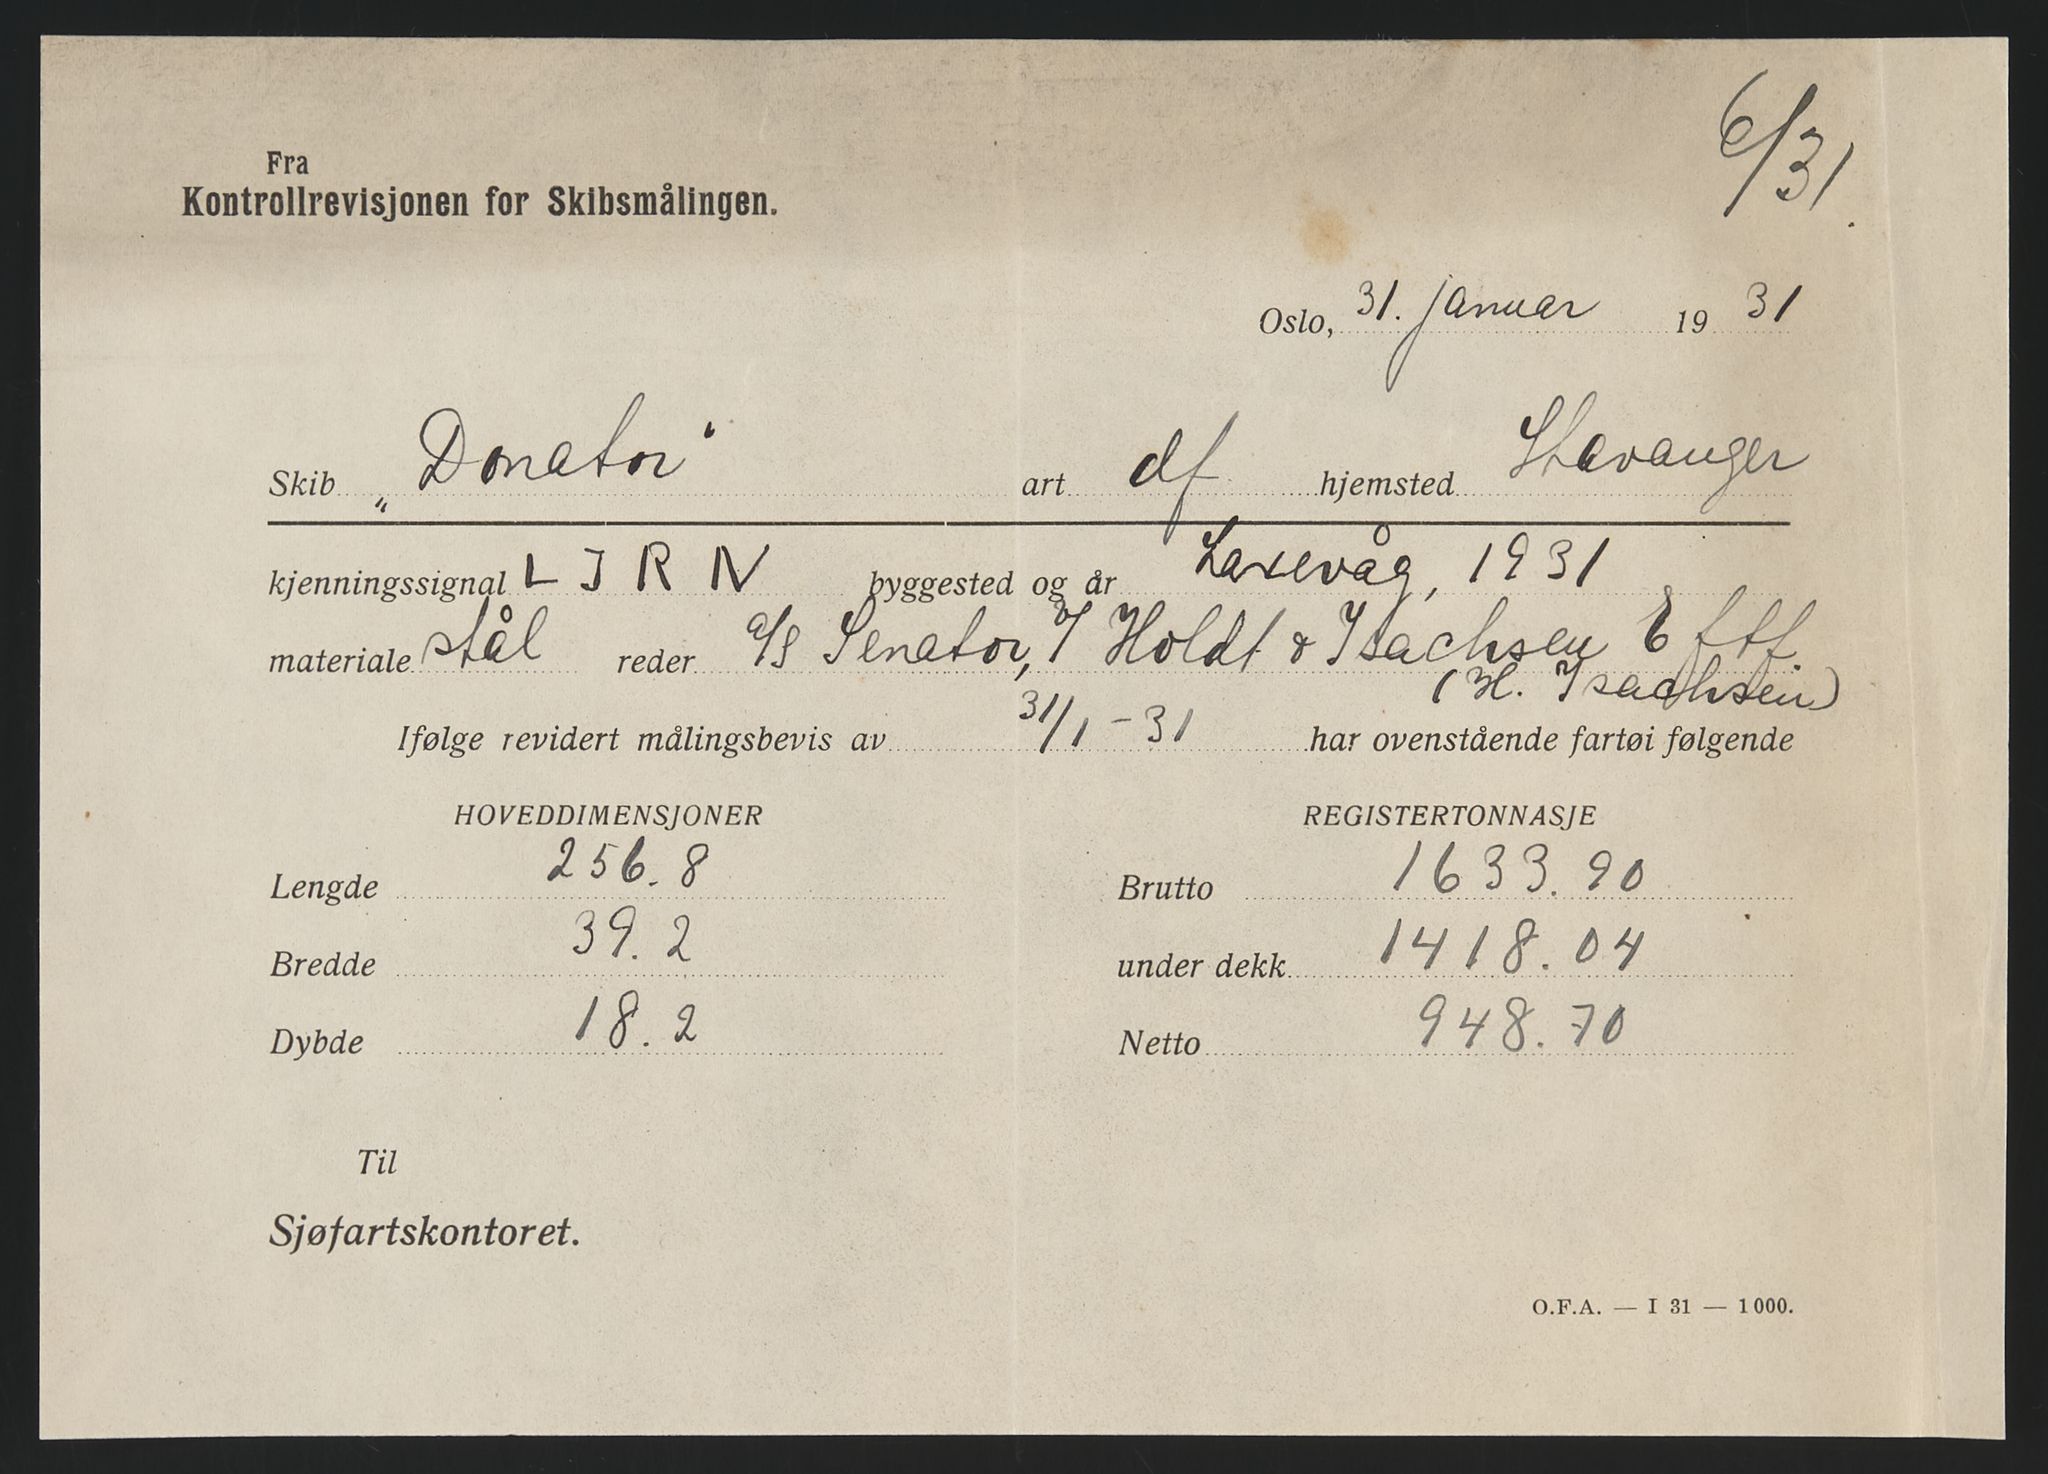 6/31.
Fra
Kontrollrevisjonen for Skibsmålingen.
Oslo, 31. januar 1931
Skib „Donator" art df hjemsted Stavanger
kjenningssignal LJRN byggested og år Laxevåg, 1931
materiale stål reder a/s Senator, v/ Holdt & Isachsen Eftf.
(H. Isachsen)
Ifølge revidert målingsbevis av 31/1-31 har ovenstående fartøi følgende
HOVEDDIMENSJONER REGISTERTONNASJE
Lengde 256.8 Brutto 1633.90
Bredde 39.2 under dekk 1418.04
Dybde 18.2 Netto 948.70
Til
Sjøfartskontoret.
O.F.A. — I 31 — 1000.